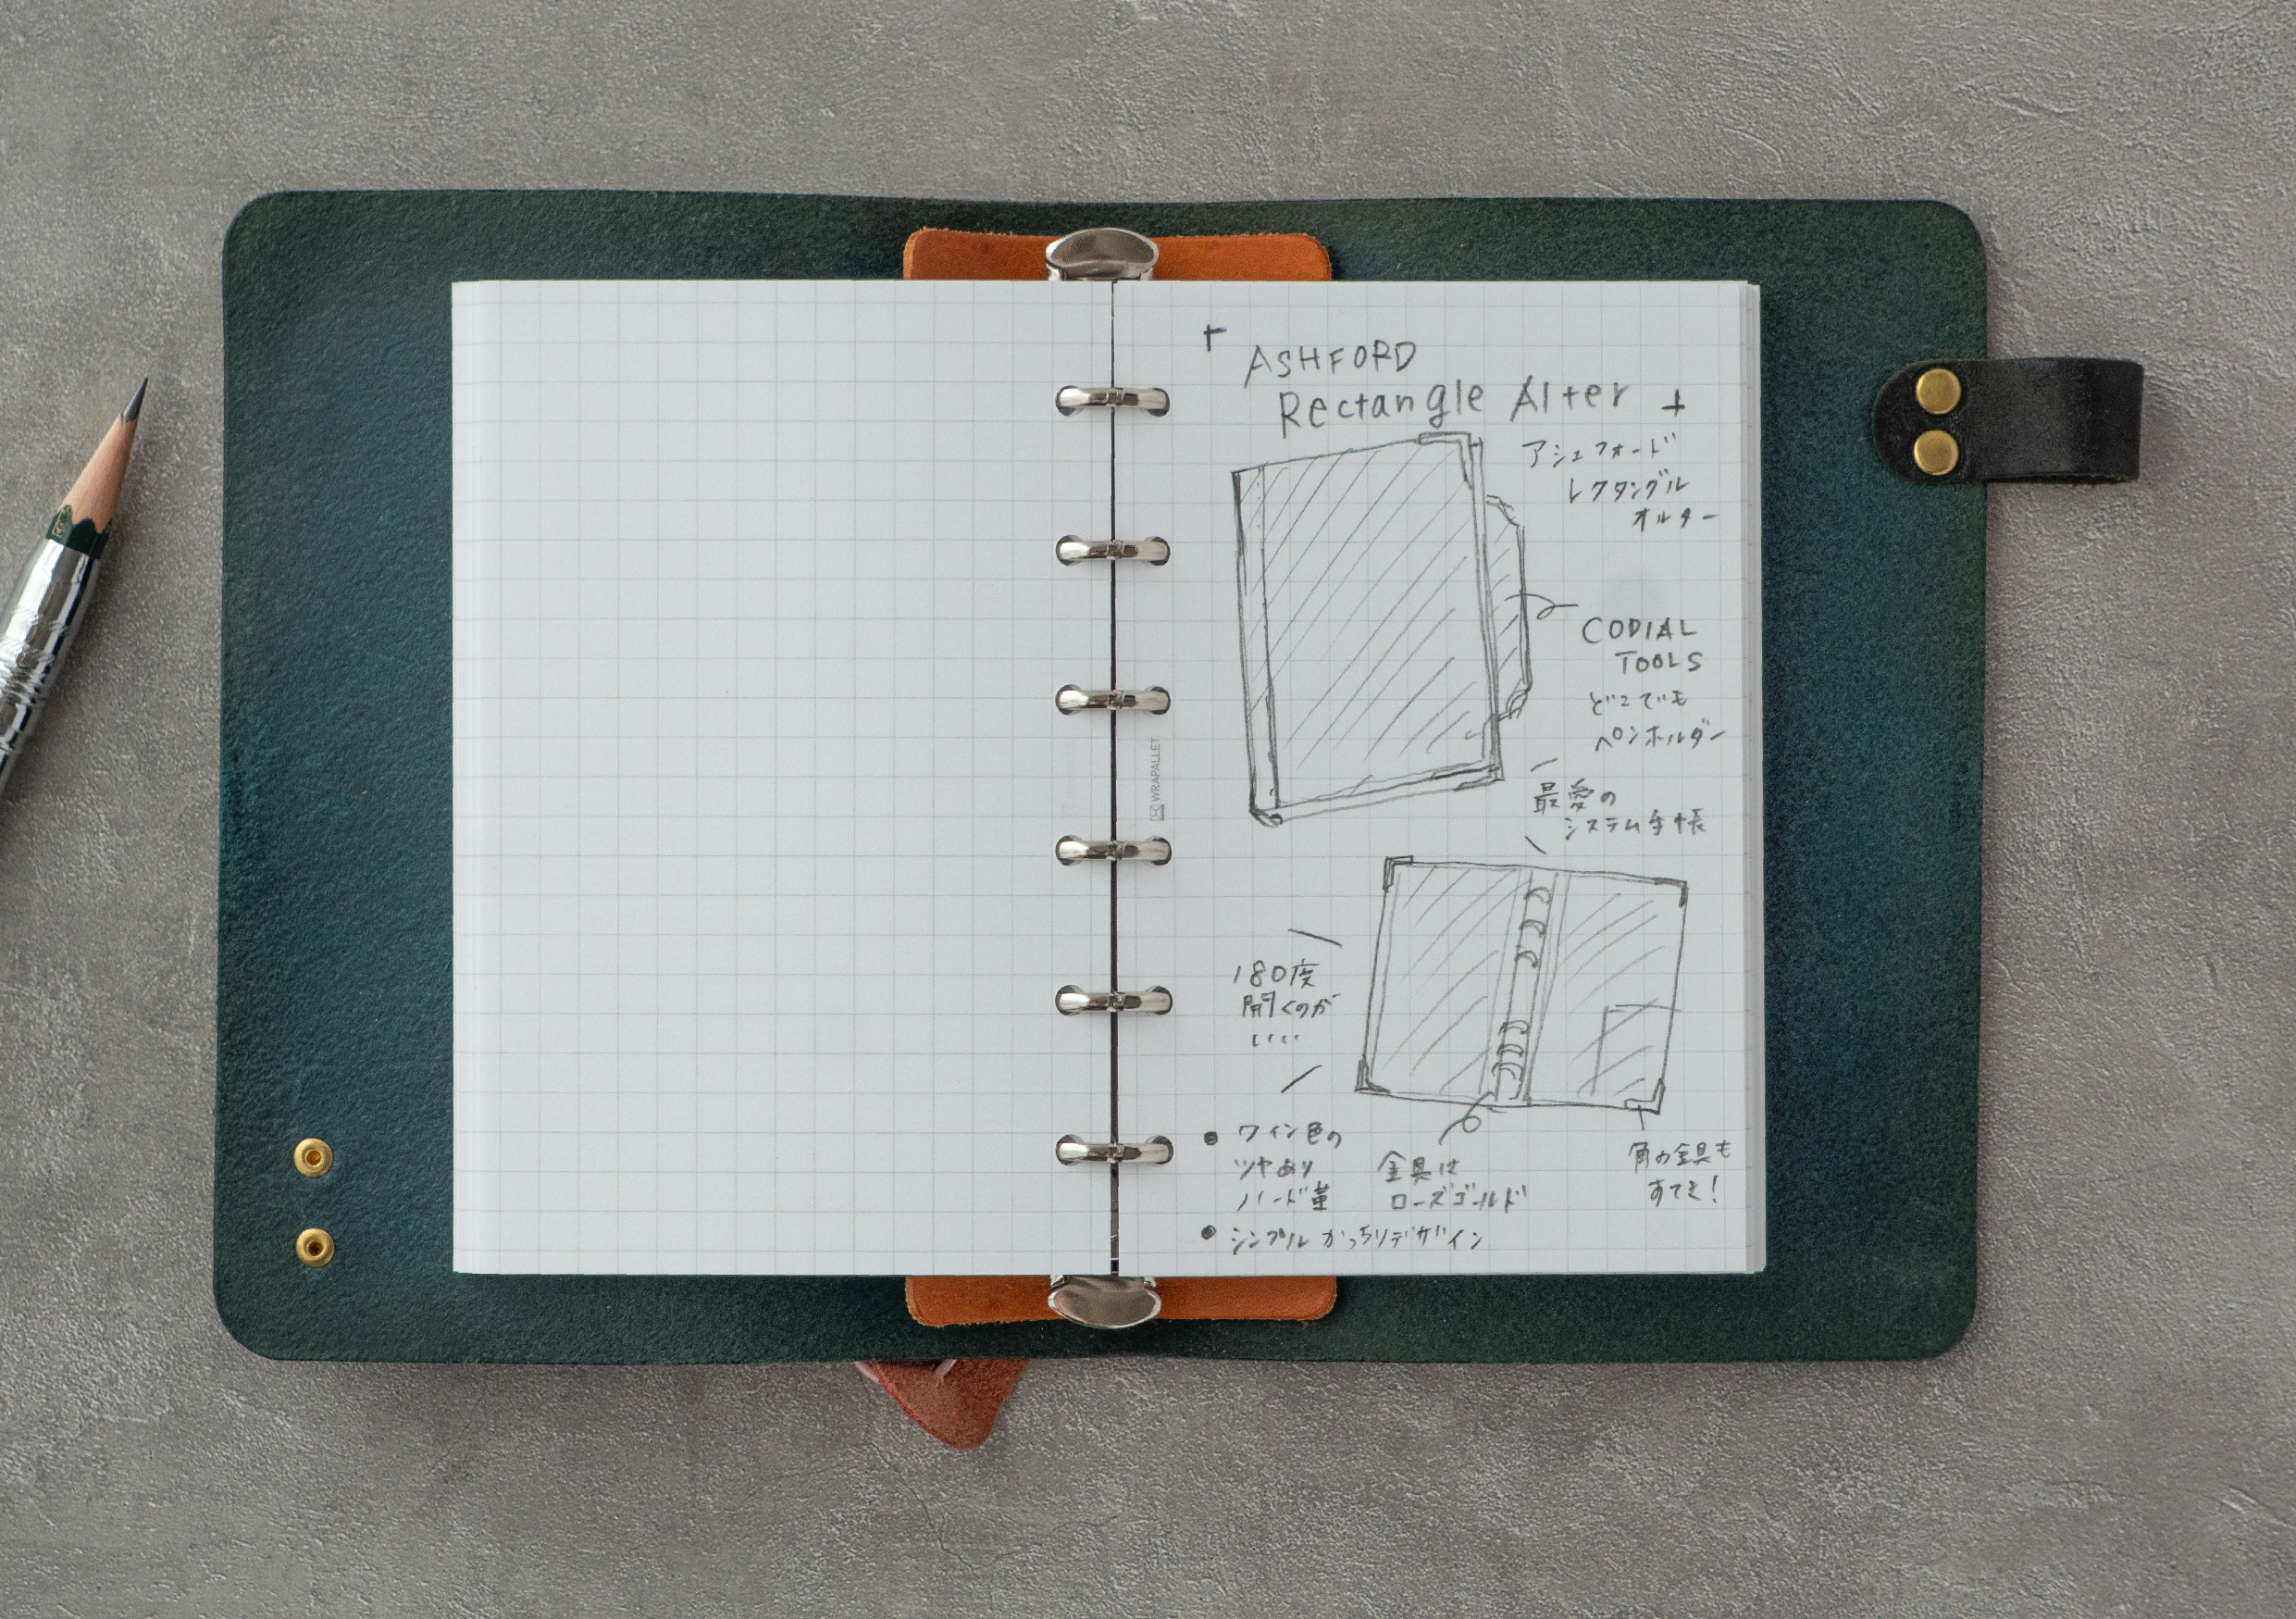 「ASHFORD
Rectangle Alter 」
アシュフォード
レクタングル
オルター
CODIAL
TOOLS
どこでも
ペンホルダー
最愛の
システム手帳
180度
開くのが
いい
● ワイン色の
ツヤあり
ハード革
金具は
ローズゴールド
角の金具も
すてき!
● シンプル かっちりデザイン
WRAPALLET